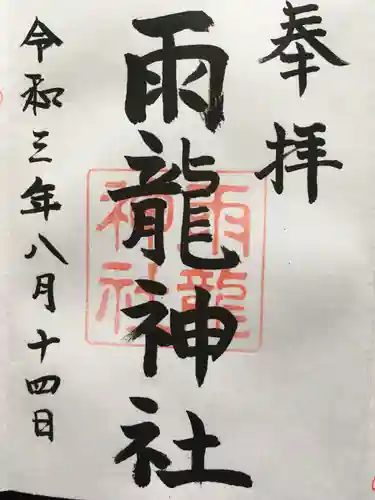 奉拝
雨龍神社
令和三年八月十四日
雨龍
神社